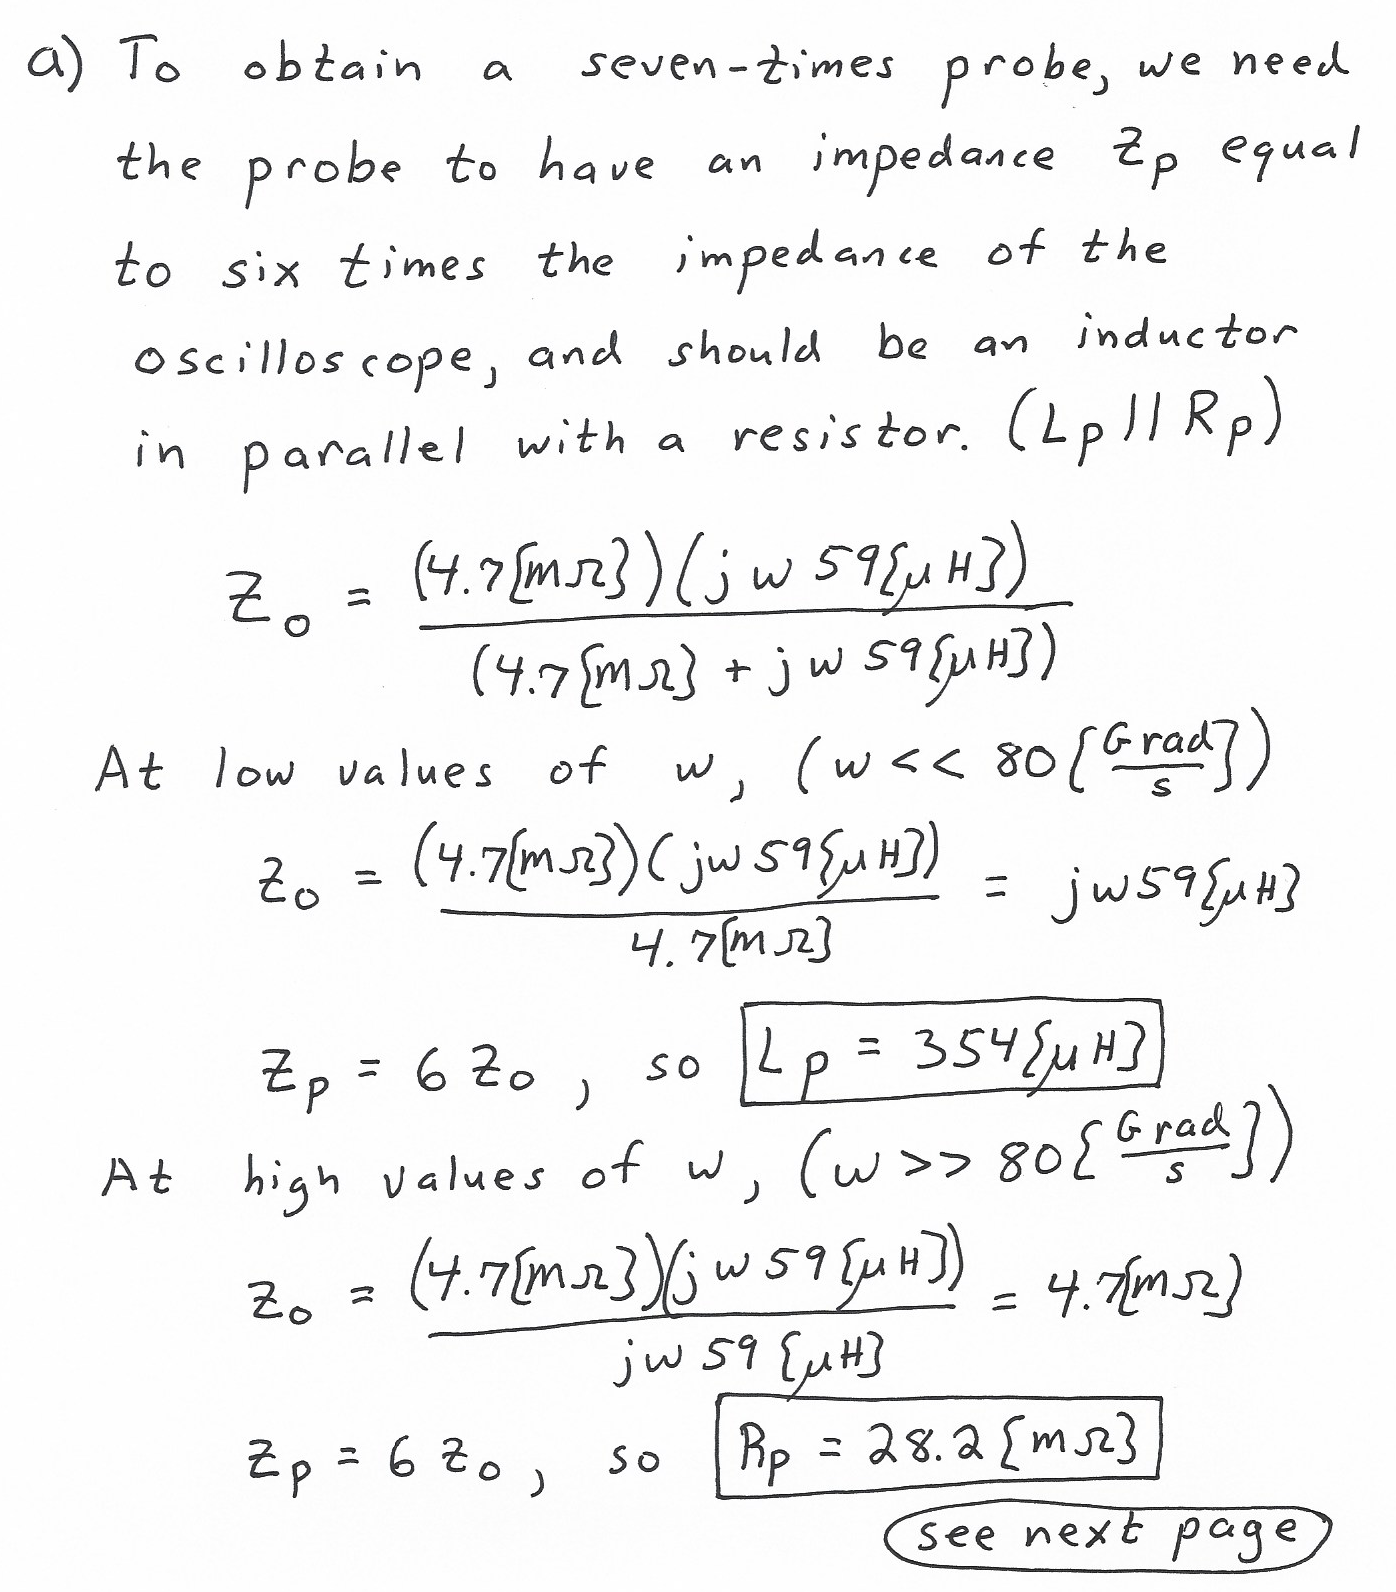 a) To obtain a seven-times probe, we need
the probe to have an impedance Zp equal
to six times the impedance of the
oscilloscope, and should be an inductor
in parallel with a resistor. (Lp || Rp)
Zo = (4.7[mΩ])(jω 59[μH]) / (4.7[mΩ] + jω 59[μH])
At low values of ω, (ω << 80[Grad/s])
Zo = (4.7[mΩ])(jω 59[μH]) / 4.7[mΩ] = jω59[μH]
Zp = 6 Zo, so Lp = 354[μH]
At high values of ω, (ω >> 80[Grad/s])
Zo = (4.7[mΩ])(jω 59[μH]) / jω 59[μH] = 4.7[mΩ]
Zp = 6 Zo, so Rp = 28.2[mΩ]
see next page